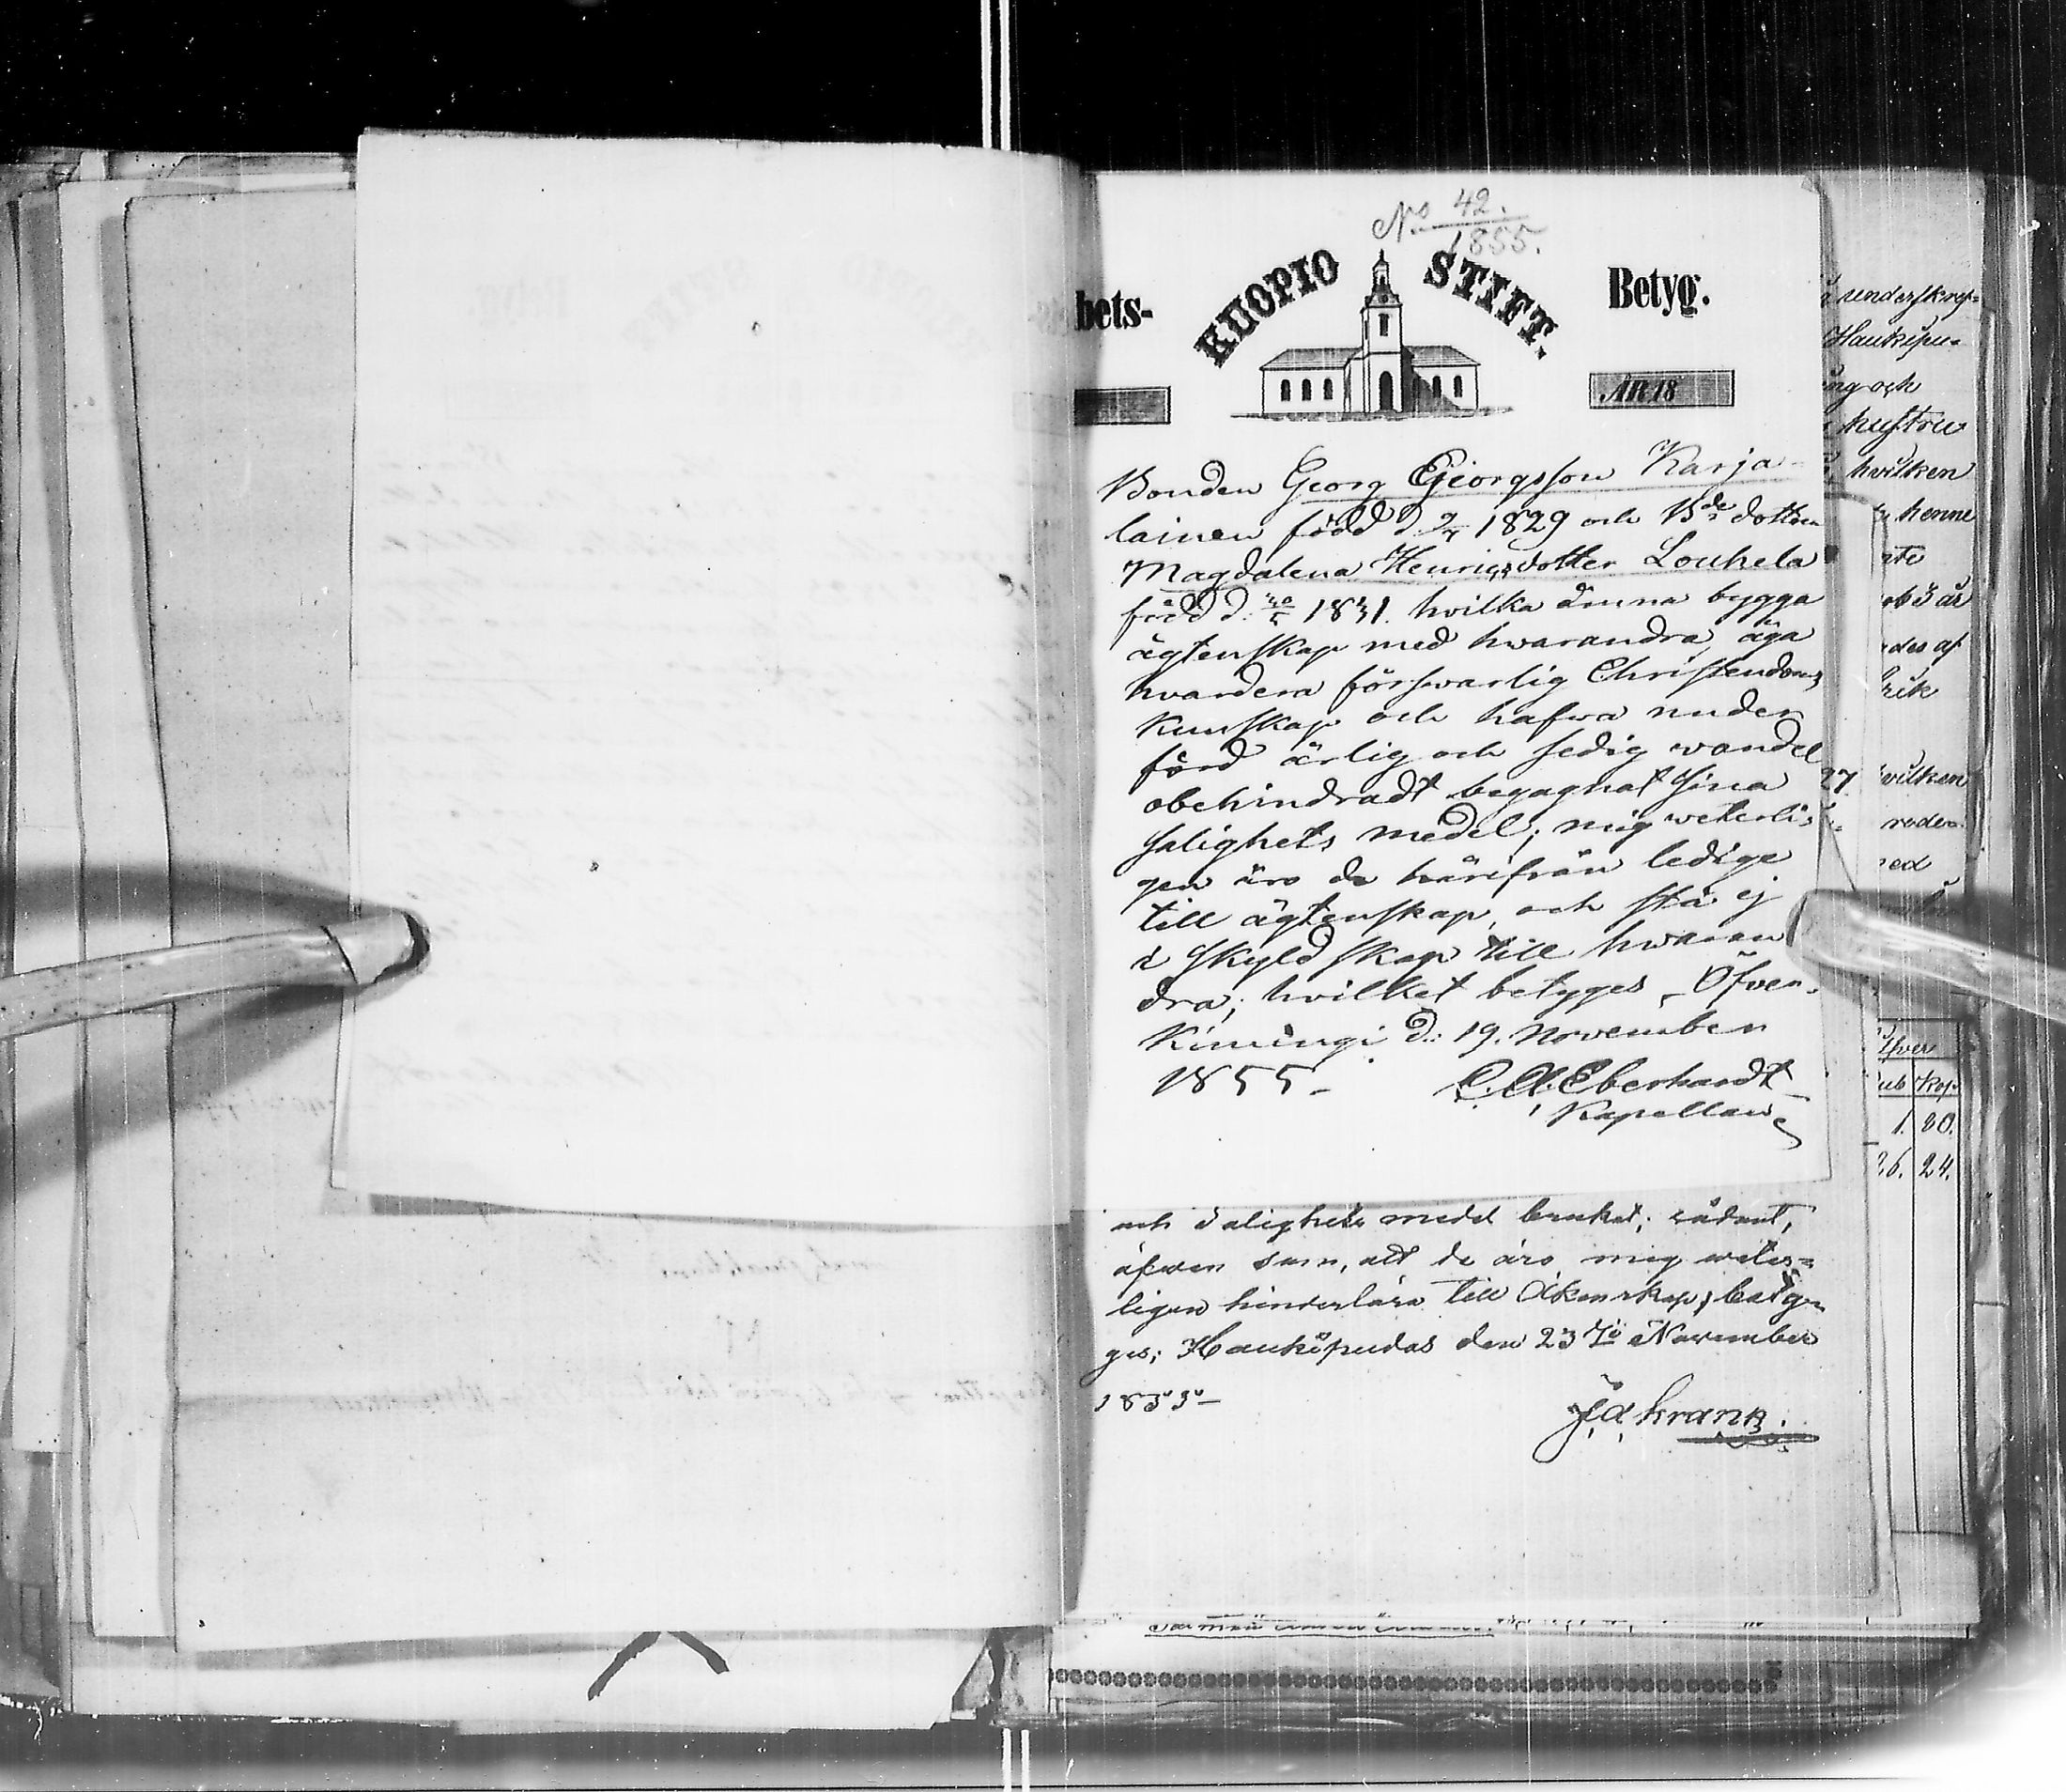 No 42.
1855.
hets-
KUOPIO STIFT.
Betyg.
ÅR 18
Bonden Georg Georgsson Karja-
lainen född d 9/4 1829 och Bde dottren
Magdalena Henricsdotter Louhela
född d. 1831. hvilka ämna bygga
ägtenskap med hwarandra, äga
hvardera förswarlig Christendoms
Kunskap och hafva under
förd ärlig och sedig wandel
obehindradt begagnat sina
salighets medel; mig veterli-
gen äro de härifrån ledige
till ägtenskap, och stå ej
i skyldskap till hwaran
dra; hvilket betyges, Öfver-
Kiimingi d: 19. November
1855-
C. A. Eberhardt
Kapellan
och salighets medel brukat; sådant,
äfven som, att de äro mig veter-
ligen hinderlösa till Äktenskap, betyg
ges; Haukipudas den 23 November
1855-
J A Krank.
underskref-
Haukipu-
ing och
hustru
hvilken
henne
nte
ob 3 år
des af
rik
27
hvilken
red
lfver
ub Kop.
1. 20.
26. 24.